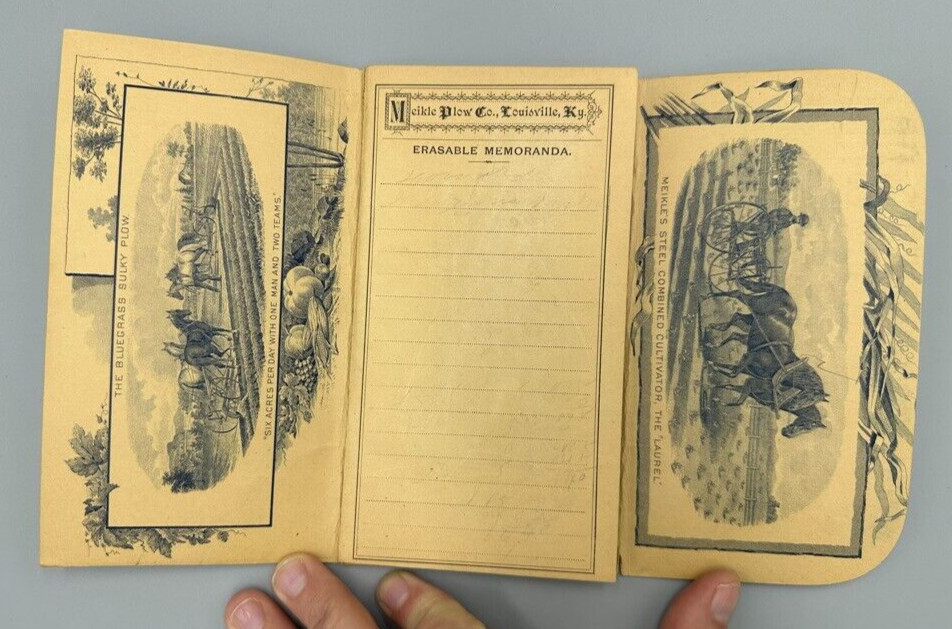 THE BLUEGRASS SULKY PLOW.
"SIX ACRES PER DAY WITH ONE MAN AND TWO TEAMS."
Meikle Plow Co., Louisville, Ky.
ERASABLE MEMORANDA.
MEIKLE'S STEEL COMBINED CULTIVATOR, THE "LAUREL"